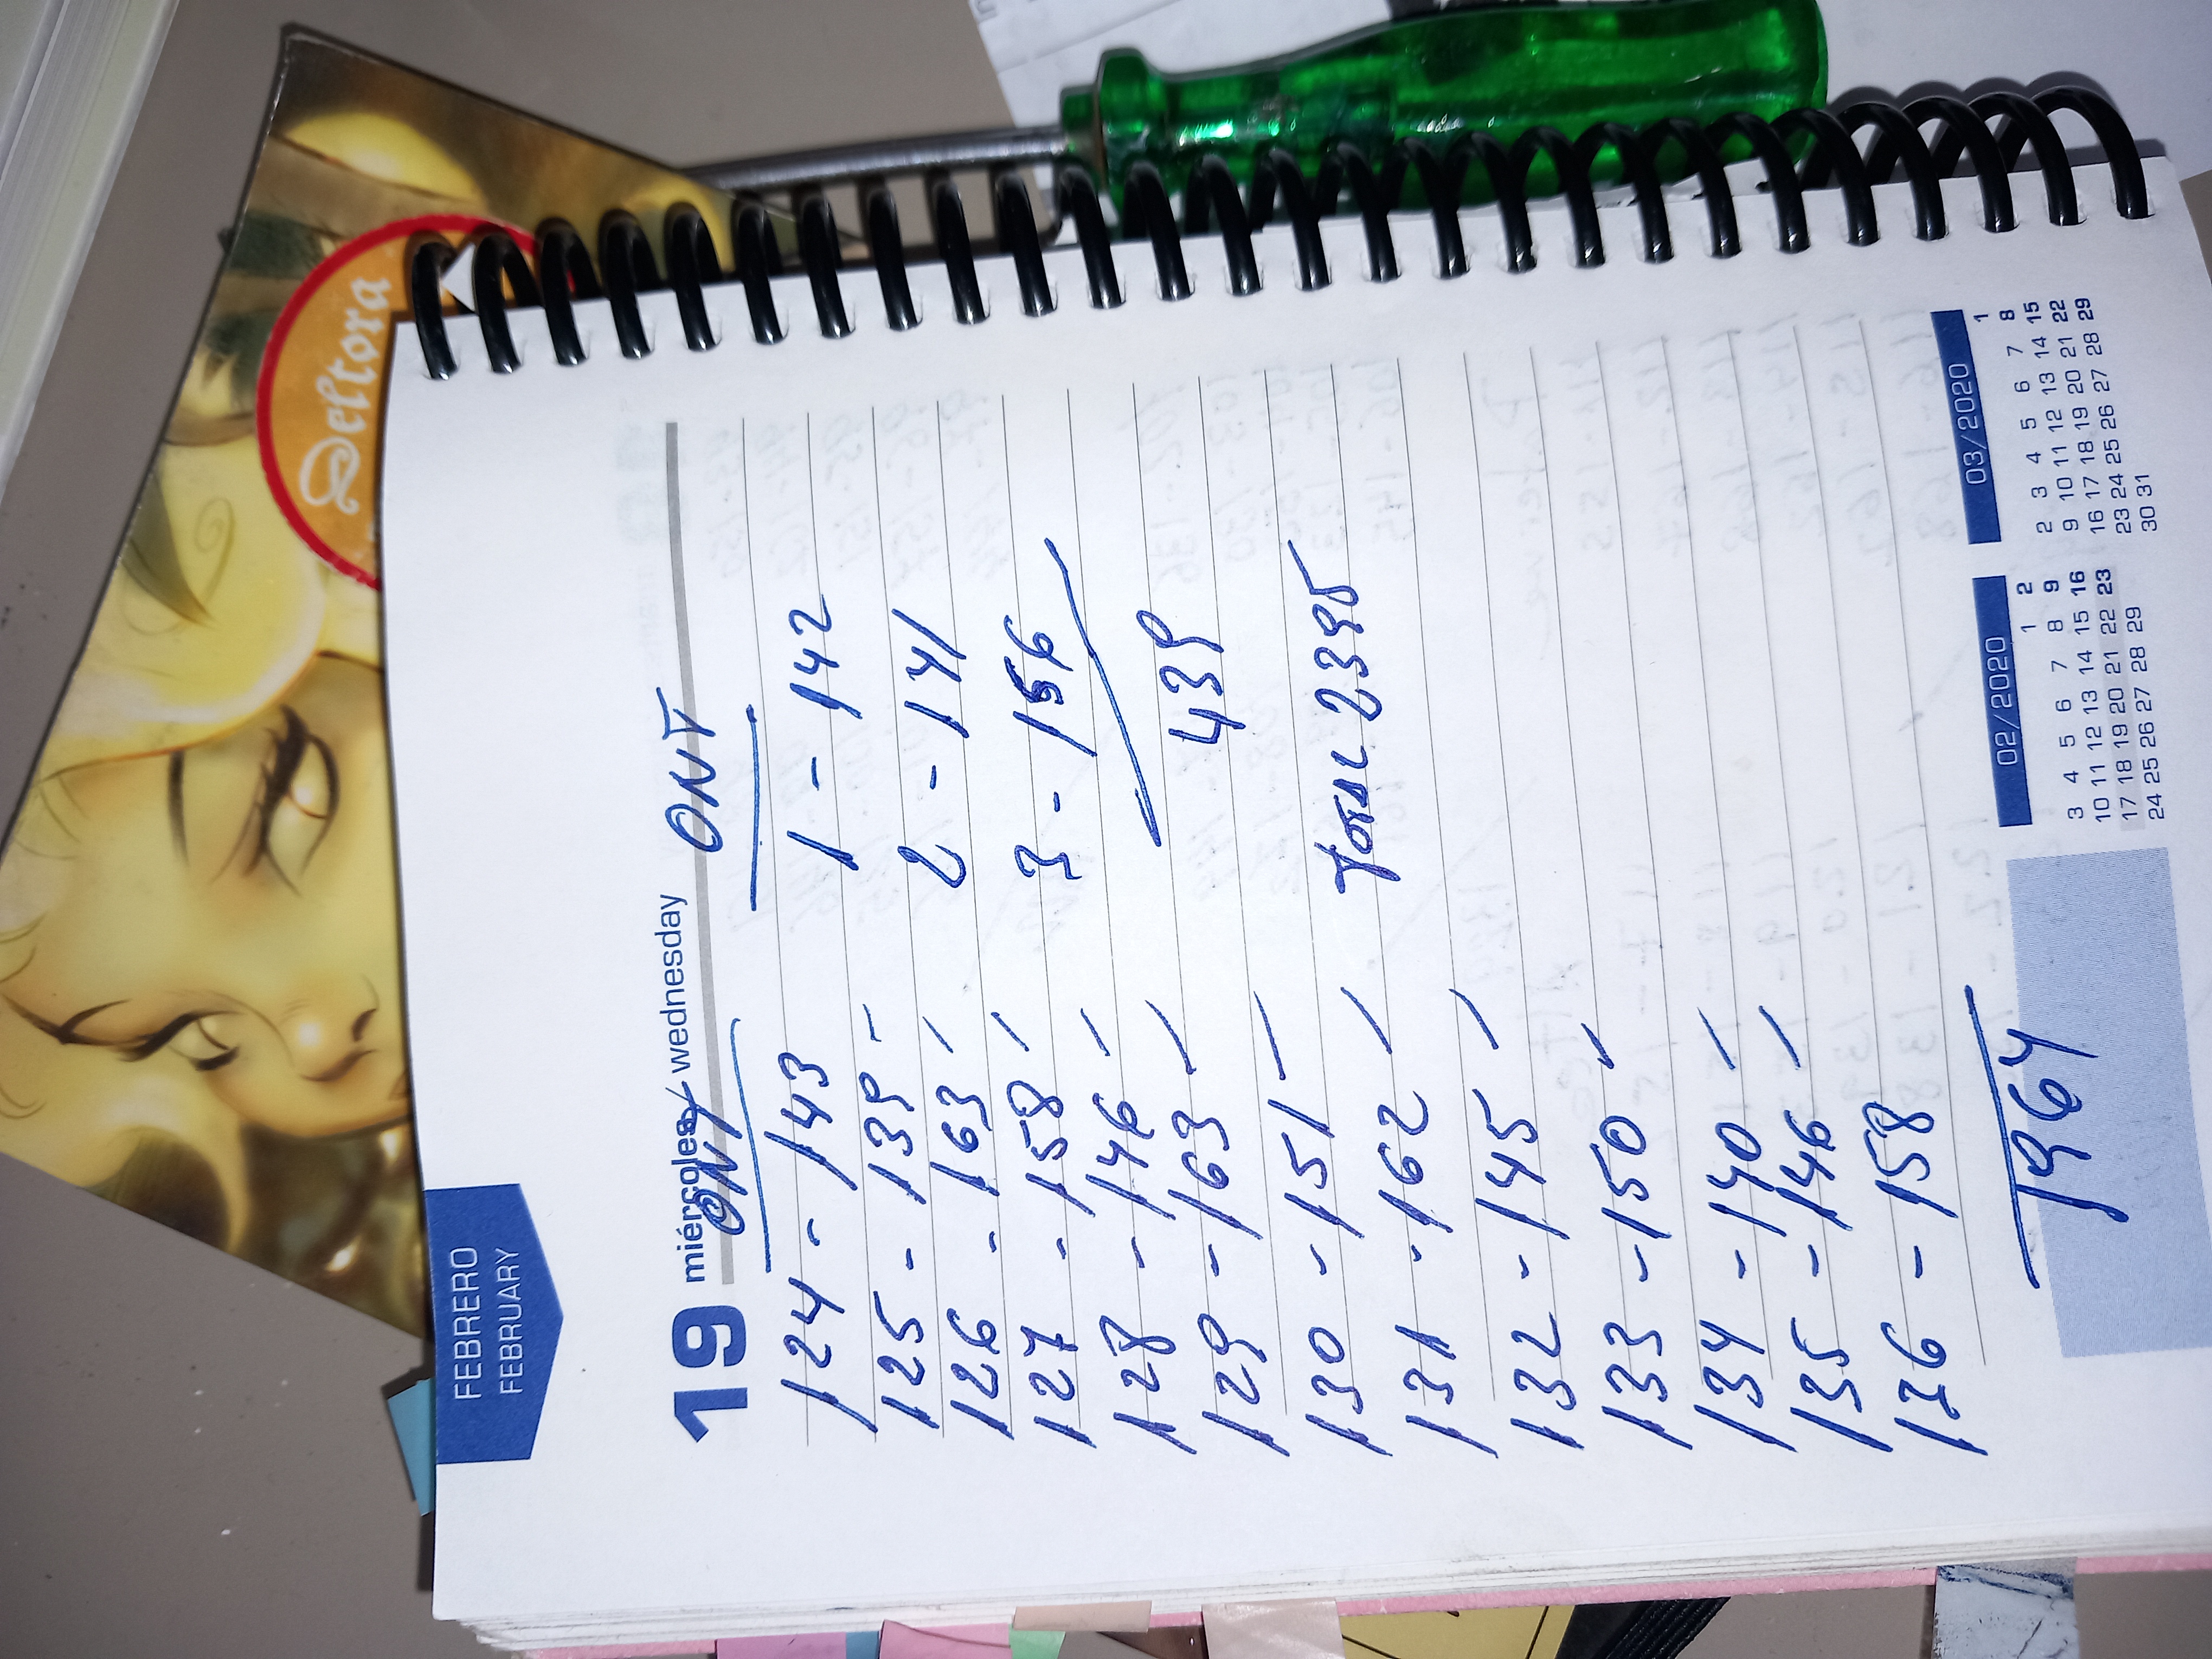 Deltora
FEBRERO
FEBRUARY
19 miércoles / wednesday
ONT
124 - 143
125 - 139 -
126 - 163 /
127 - 158 /
128 - 146 /
129 - 163 /
130 - 151 /
131 - 162 /
132 - 145 /
133 - 150 /
134 - 140 /
135 - 146 /
136 - 158
1964
ONT
1 - 142
2 - 141
3 - 156
439
TOTAL 2395
02/2020
1 2
3 4 5 6 7 8 9
10 11 12 13 14 15 16
17 18 19 20 21 22 23
24 25 26 27 28 29
03/2020
1
2 3 4 5 6 7 8
9 10 11 12 13 14 15
16 17 18 19 20 21 22
23 24 25 26 27 28 29
30 31